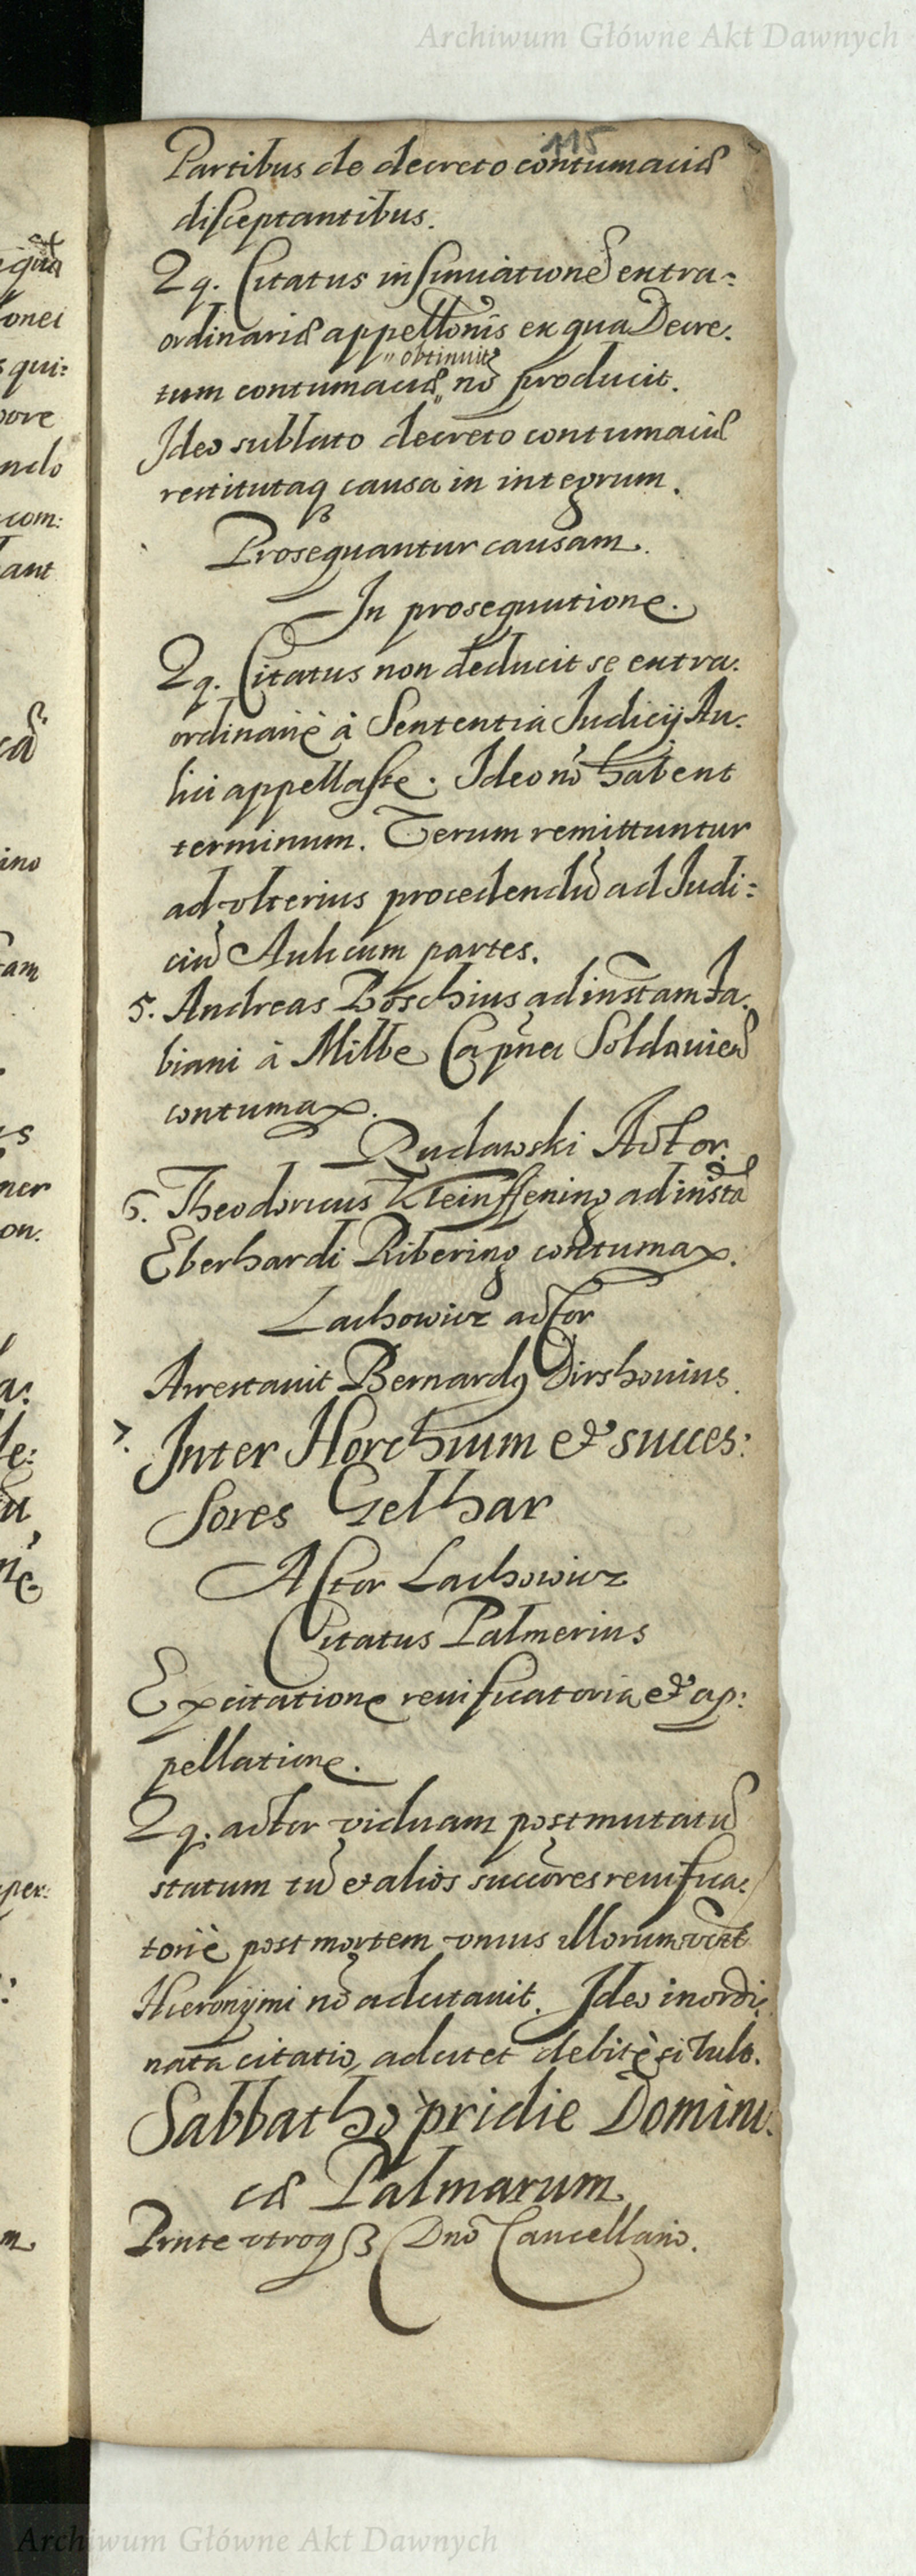 Archiwum Główne Akt Dawnych
115
Partibus de decreto contumaciæ
disceptantibus.
Qq. Citatus insinuationē extra-
ordinariæ appellōnis ex qua Decre-
obtinuit
tum contumaciæ nō producit.
Ideo sublato decreto contumaciæ
restitutaq causa in integrum.
Prosequantur causam.
In prosequutione.
Qq. Citatus non deducit se extra-
ordinariè à Sententia Judicij Au-
lici appellasse. Ideo nō habent
terminum. Verum remittuntur
ad vlterius procedendū ad Judi-
ciū Aulicum partes.
5. Andreas Boschius ad instam Fa-
biani à Milbe Capnei Soldauien
contumax.
Rudawski Actor.
6. Theodoricus Kleinffening ad instā
Eberhardi Ribering contumax.
Lachowicz actor
Arrestauit Bernardq Dirshouius.
7. Inter Horchium et succes-
sores Gelhar
Actor Lachowicz
Citatus Palmerius
Ex citatione reuificatoria et ap-
pellatione.
Qq. actor viduam post mutatū
statum tū et alios succōres reuifica-
toriè post mortem vnius illorum
Hieronymi nō adcitauit. Ideo inordi-
nata citatio, adcitet debitè si
Sabbatho pridie Domini-
cæ Palmarum
Pnte vtroqȝ Dno Cancellario.
onei
qui-
pore
ndo
com:
ant
ino
tam
ner
on.
per:
Archiwum Główne Akt Dawnych